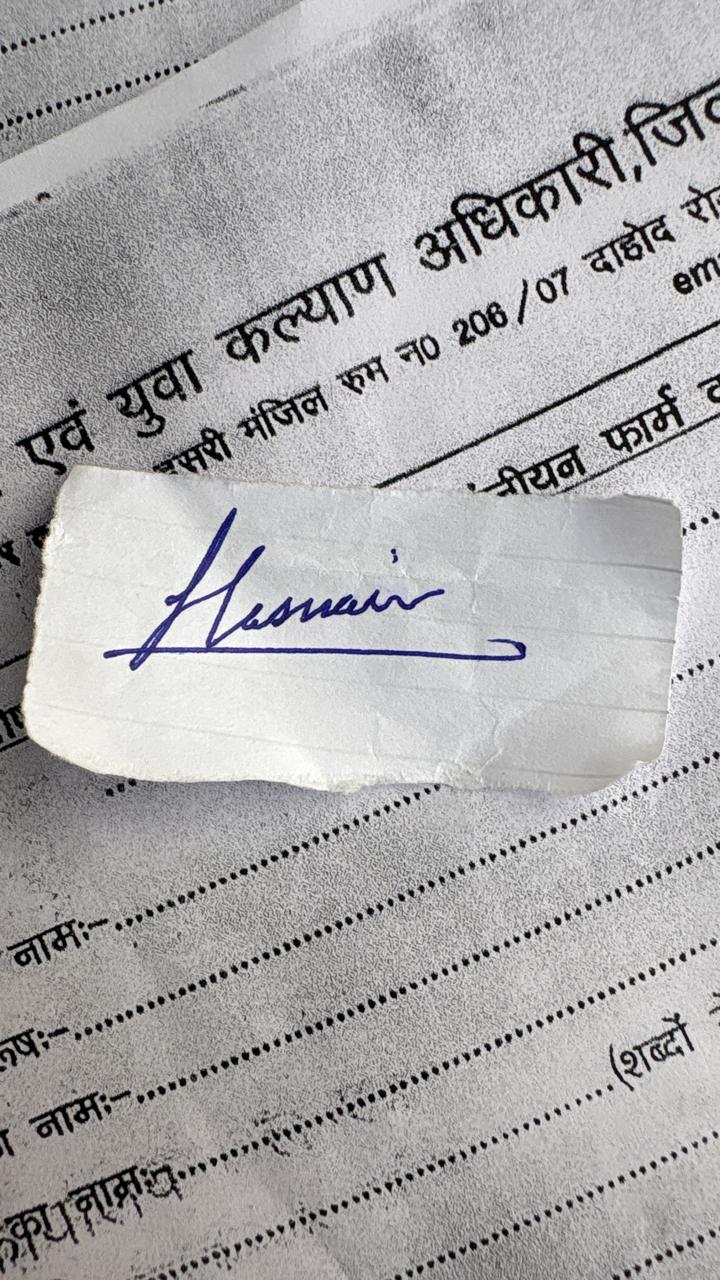 एवं युवा कल्याण अधिकारी,
मंजिल रुम न0 206/07 दाहोद
फार्म
Hasnain
नाम:-
नाम:-
(शब्दों
का नाम:-